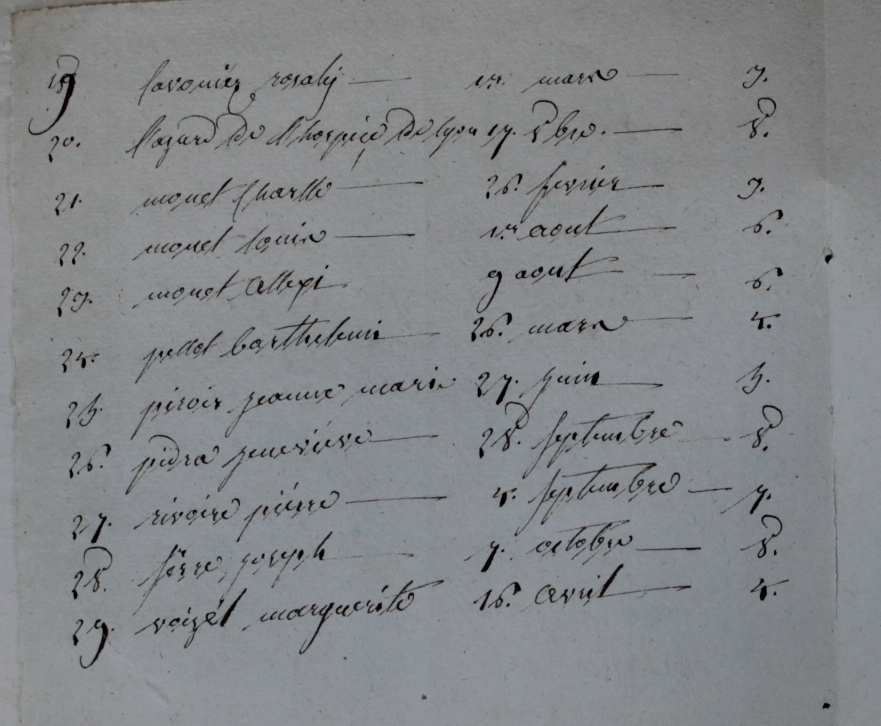 19 lavonier rosaly 1er mars 3.
20. l'azard de l'hospice de lyon 17. 8bre. 8.
21. moret Charlle 26. fevrier 3.
22. moret louis 1er aout 6.
23. moret Allexi 9 aout 6.
24. pellot barthelemi 26. mars 4.
25. piroir jeanne marie 27. juin 5.
26. pidra genevieve 28. septembre 8.
27. rivoire pierre 4. septembre 7.
28. serre joseph 7. octobre 8.
29. voizet marguerite 16. avril 4.